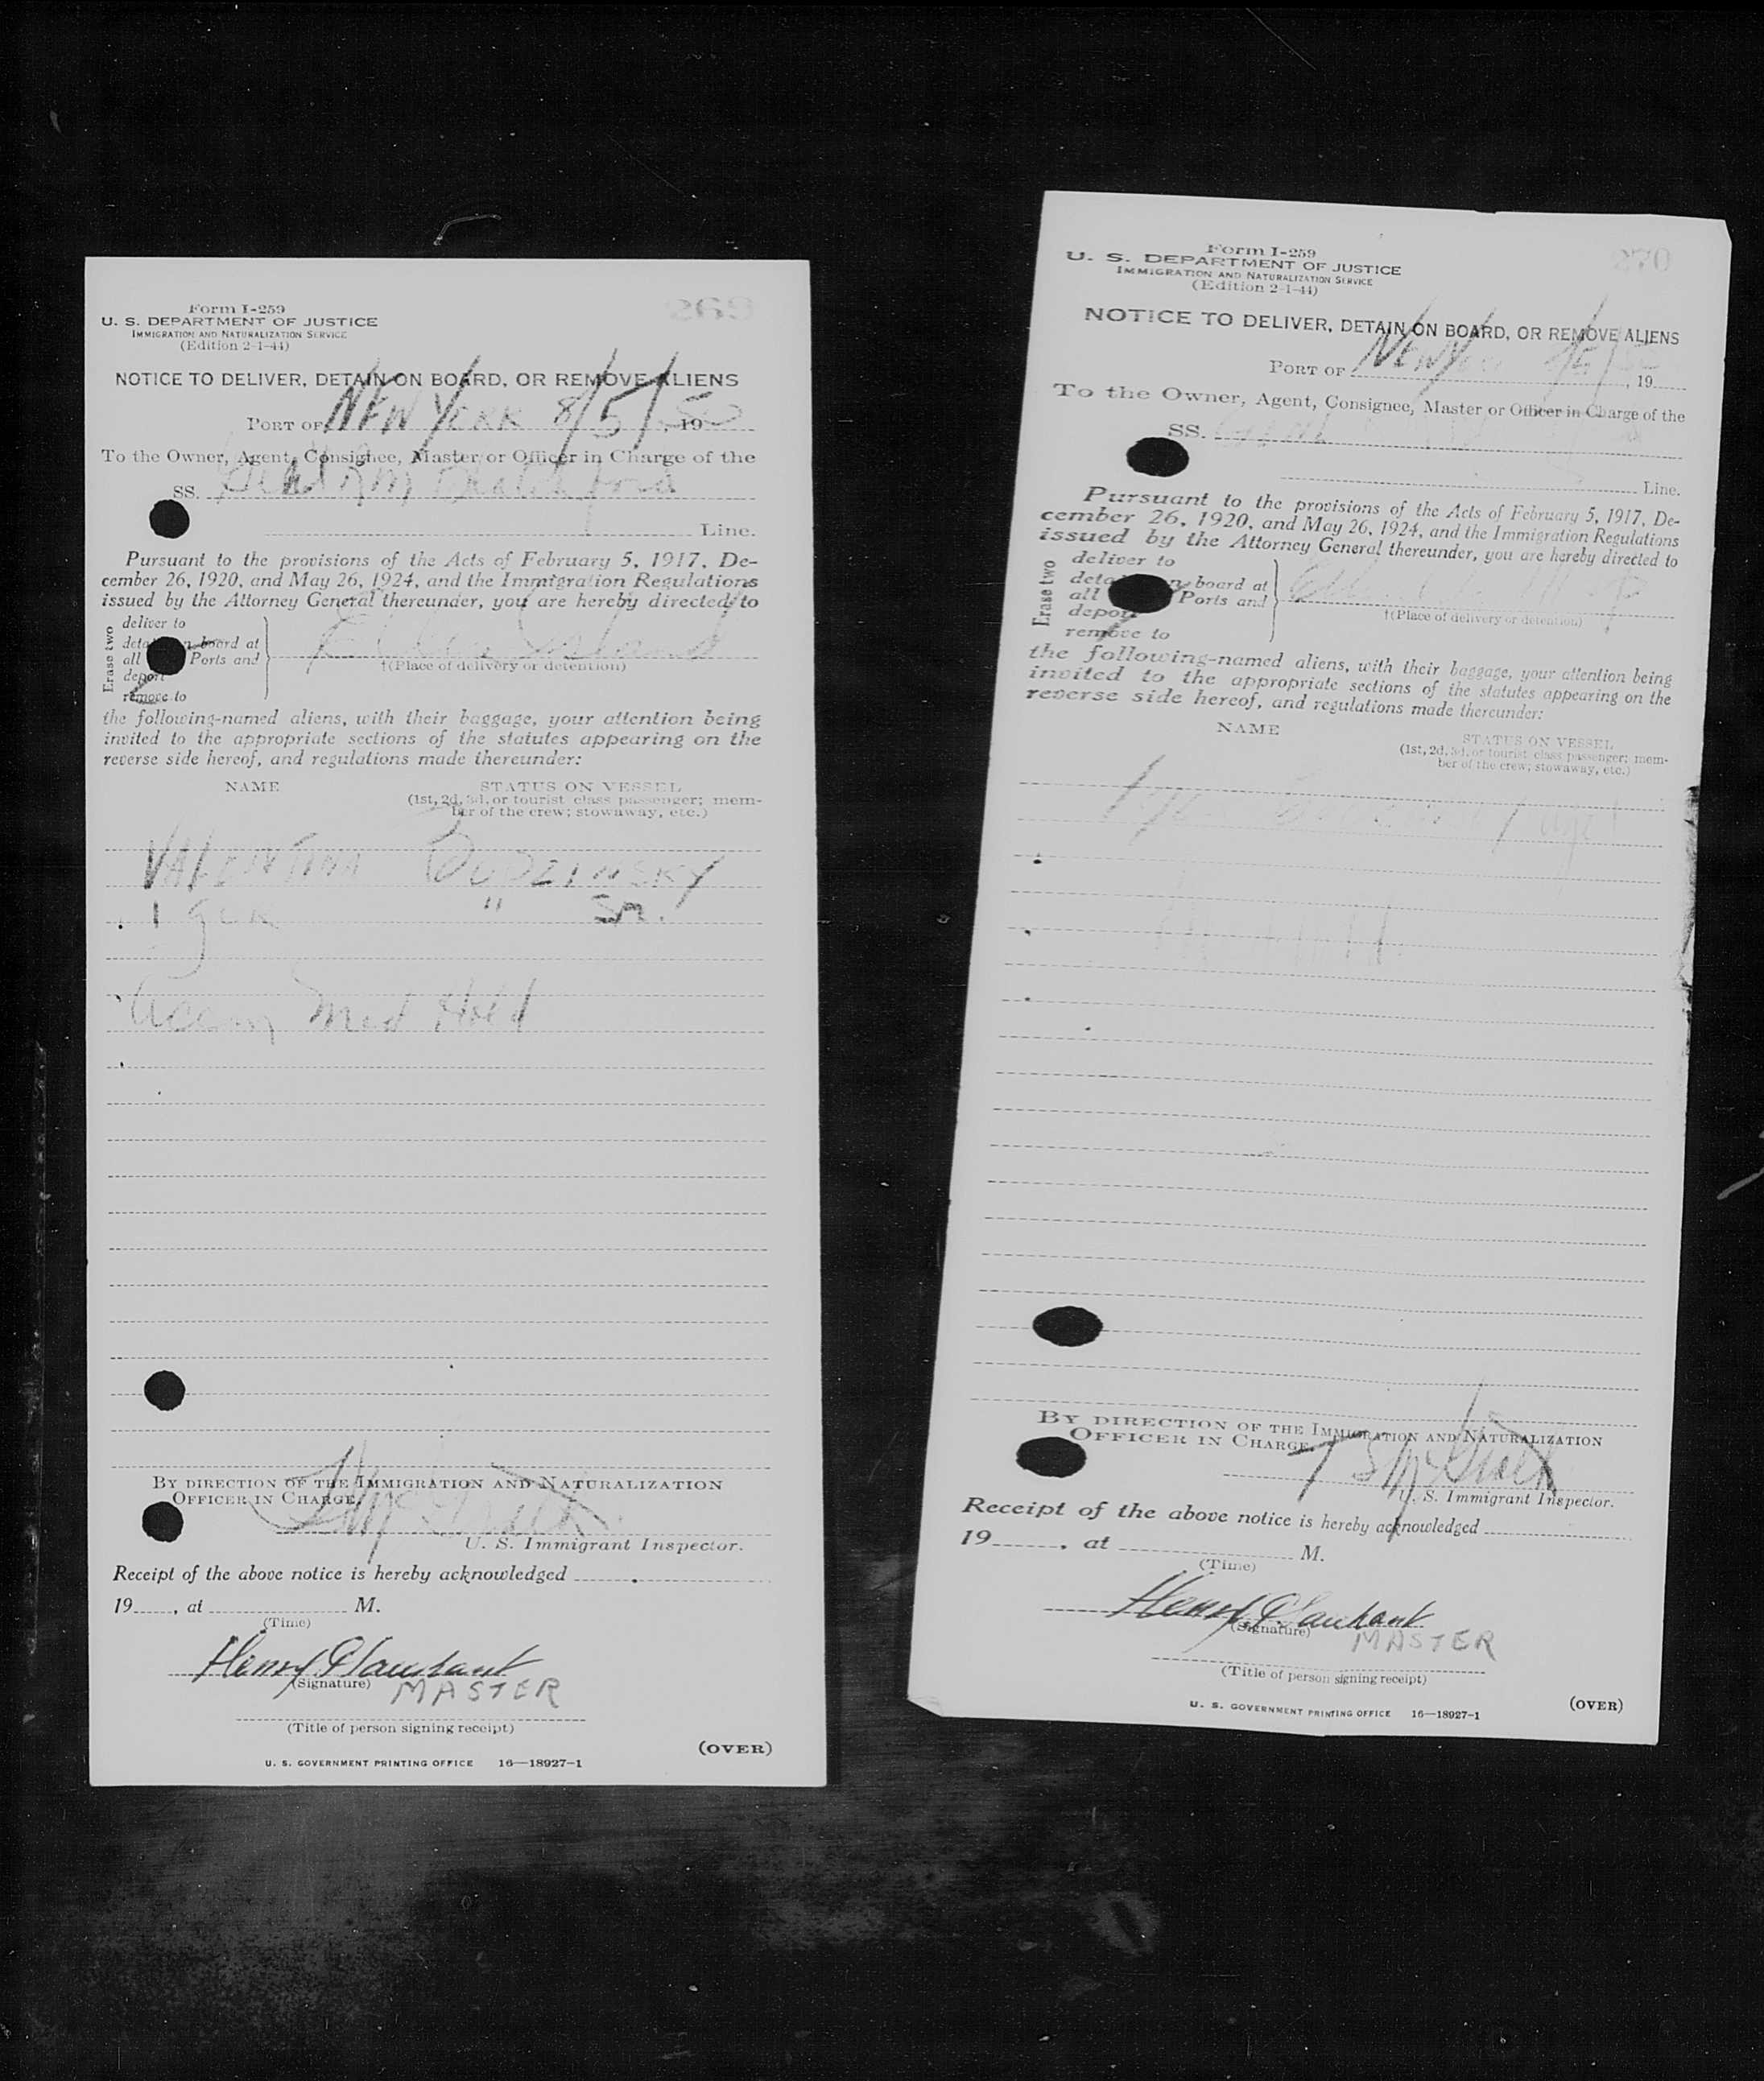 Form I-259
U. S. DEPARTMENT OF JUSTICE
IMMIGRATION AND NATURALIZATION SERVICE
(Edition 2-1-44)
NOTICE TO DELIVER, DETAIN ON BOARD, OR REMOVE ALIENS
PORT OF NEW YORK 8/5/, 1950
To the Owner, Agent, Consignee, Master or Officer in Charge of the
SS.
Line.
Pursuant to the provisions of the Acts of February 5, 1917, De-
cember 26, 1920, and May 26, 1924, and the Immigration Regulations
issued by the Attorney General thereunder, you are hereby directed to
Erase two
deliver to
board at
all Ports and
remove to
Ellis Island
†(Place of delivery or detention)
the following-named aliens, with their baggage, your attention being
invited to the appropriate sections of the statutes appearing on the
reverse side hereof, and regulations made thereunder:
NAME STATUS ON VESSEL
(1st, 2d, 3d, or tourist class passenger; mem-
ber of the crew; stowaway, etc.)
VALENTINA BUDZINSKY
IgoR " SR.
Accom Med Hold
BY DIRECTION OF THE IMMIGRATION AND NATURALIZATION
OFFICER IN CHARGE,
U. S. Immigrant Inspector.
Receipt of the above notice is hereby acknowledged
19 , at M.
(Time)
Henry
(Signature) MASTER
(Title of person signing receipt)
(OVER)
U. S. GOVERNMENT PRINTING OFFICE 16—18927-1
Form I-259
U. S. DEPARTMENT OF JUSTICE
IMMIGRATION AND NATURALIZATION SERVICE
(Edition 2-1-44)
NOTICE TO DELIVER, DETAIN ON BOARD, OR REMOVE ALIENS
PORT OF New York 8/5/ , 19
To the Owner, Agent, Consignee, Master or Officer in Charge of the
SS.
Line.
Pursuant to the provisions of the Acts of February 5, 1917, De-
cember 26, 1920, and May 26, 1924, and the Immigration Regulations
issued by the Attorney General thereunder, you are hereby directed to
Erase two
deliver to
board at
all Ports and
remove to
†(Place of delivery or detention)
the following-named aliens, with their baggage, your attention being
invited to the appropriate sections of the statutes appearing on the
reverse side hereof, and regulations made thereunder:
NAME STATUS ON VESSEL
(1st, 2d, 3d, or tourist class passenger; mem-
ber of the crew; stowaway, etc.)
BY DIRECTION OF THE IMMIGRATION AND NATURALIZATION
OFFICER IN CHARGE,
U. S. Immigrant Inspector.
Receipt of the above notice is hereby acknowledged
19 , at M.
(Time)
Henry
(Signature) MASTER
(Title of person signing receipt)
(OVER)
U. S. GOVERNMENT PRINTING OFFICE 16—18927-1